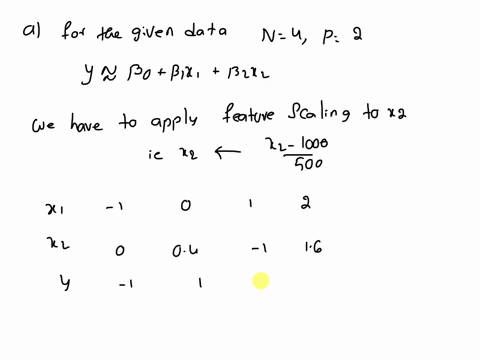 a) for the given data N=4, P= 2
y ≈ β0 + β1x1 + β2x2
we have to apply feature scaling to x2
ie x2 ← x2 - 1000 / 500
x1 -1 0 1 2
x2 0 0.4 -1 1.6
y -1 1